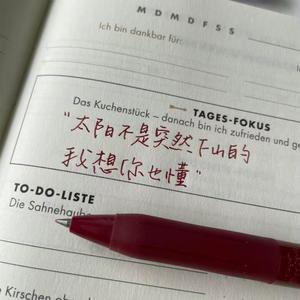 M D M D F S S
Ich bin dankbar für:
TAGES-FOKUS
Das Kuchenstück – danach bin ich zufrieden und
"太阳不是突然下山的
我想你也懂"
TO-DO-LISTE
Die Sahnehaube
Kirschen